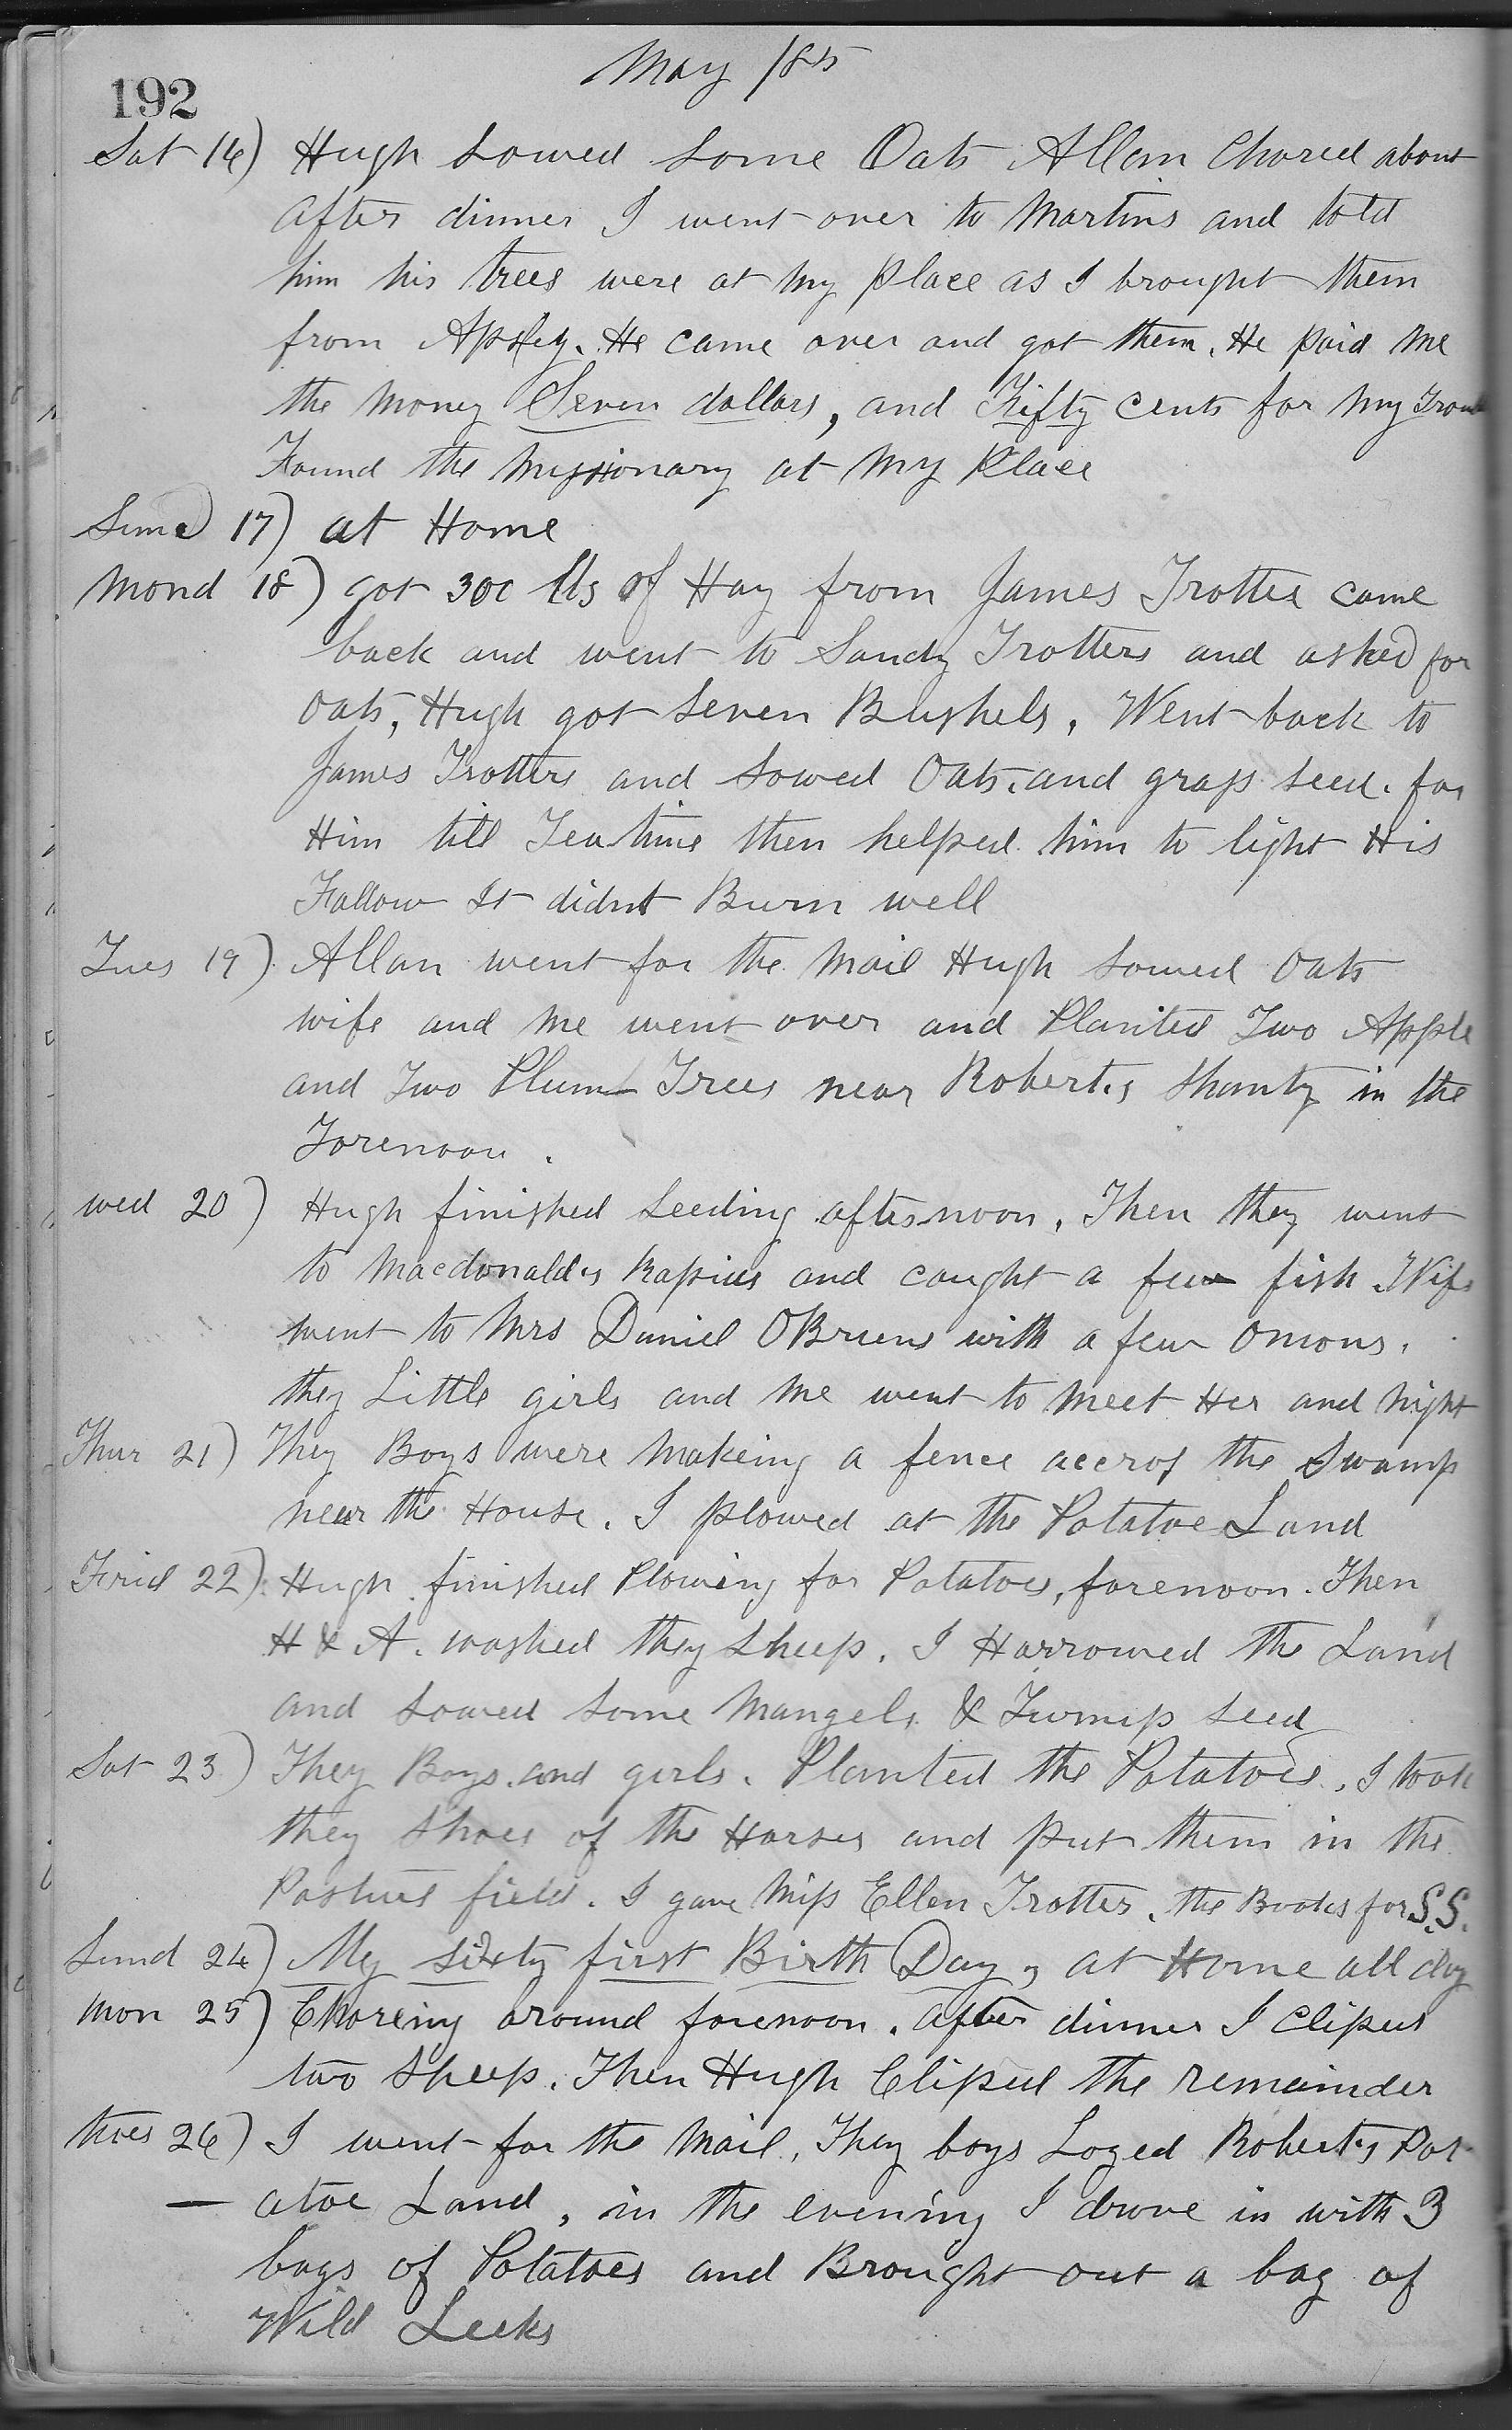 192
May /85
Sat 16) Hugh Sowed Some Oats Allan Chored about
after dinner I went over to Martins and told
him his trees were at my place as I brought them
from Apsley. He came over and got them. He paid me
the money Seven dollars, and Fifty cents for my
Found the missionary at my Place
Sund 17) at Home
Mond 18) got 300 lbs of Hay from James Trotter came
back and went to Sandy Trotters and asked for
Oats, Hugh got Seven Bushels, Went back to
James Trotters and Sowed Oats, and grass seed. for
Him till Tea time then helped him to light His
Fallow It didnt Burn well
Tues 19) Allan went for the Mail Hugh Sowed Oats
wife and me went over and Planted Two Apple
and Two Plum Trees near Roberts Shanty in the
Forenoon.
wed 20) Hugh finished Seeding afternoon, Then they went
to Macdonalds Rapids and caught a few fish Wife
went to Mrs Daniel OBriens with a few Onions.
they Little girls and me went to meet Her and night
Thur 21) They Boys were Makeing a fence accross the Swamp
near the House. I plowed at the Potatoe Land
Frid 22) Hugh finished Plowing for Potatoes, forenoon. Then
H & A. washed they Sheep. I Harrowed the Land
and Sowed Some Mangels & Turnip Seed
Sat 23) They Boys and girls. Planted the Potatoes, I took
they Shoes of the Horses and put them in the
Pasture field. I gave Miss Ellen Trotter, the Books for S.S.
Sund 24) My sixty first Birth Day, at Home all day
Mon 25) Choreing around forenoon. after dinner I Cliped
two Sheep. Then Hugh Cliped the remainder
tues 26) I went for the Mail, They boys Loged Roberts Pot-
- atoe Land, in the evening I drove in with 3
bags of Potatoes and Brought out a bag of
Wild Leeks